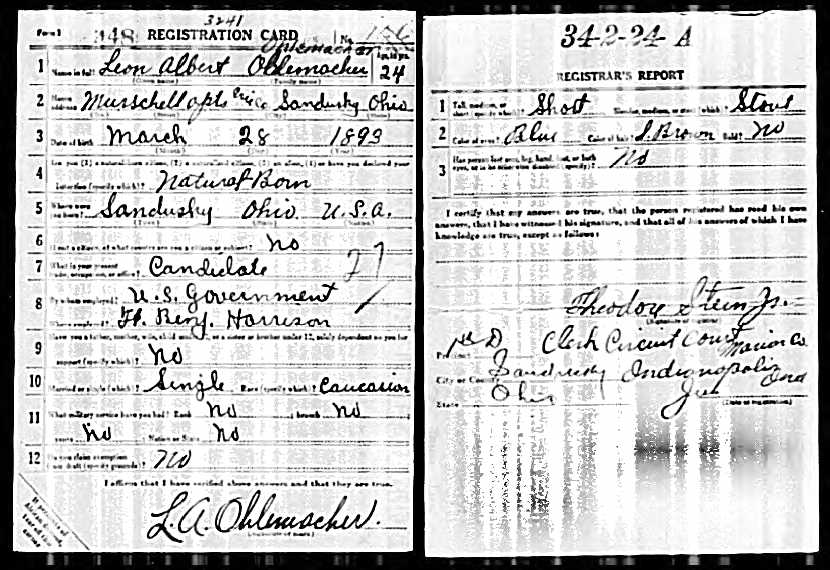 3241
Form 1 348 REGISTRATION CARD No. 156
Ohlemacher
1 Name in full Leon Albert Ohlemacher Age, in yrs. 24
(Given name) (Family name)
2 Home address Musschell Apts Erie Co Sandusky Ohio
(No.) (Street) (City) (State)
3 Date of birth March 28 1893
(Month) (Day) (Year)
4 Are you (1) a natural-born citizen, (2) a naturalized citizen, (3) an alien, (4) or have you declared your
intention (specify which)? Natural Born
5 Where were you born? Sandusky Ohio U.S.A.
(Town) (State) (Nation)
6 If not a citizen, of what country are you a citizen or subject? No
7 What is your present trade, occupation, or office? Candidate 27
8 By whom employed? U.S. Government
Where employed? Ft. Benj. Harrison
9 Have you a father, mother, wife, child under 12, or a sister or brother under 12, solely dependent on you for
support (specify which)? No
10 Married or single (which)? Single Race (specify which)? Caucasian
11 What military service have you had? Rank No ; branch No
years No ; Nation or State No
12 Do you claim exemption from draft (specify grounds)? No
I affirm that I have verified above answers and that they are true.
L.A. Ohlemacher.
(Signature or mark)
If person is of African descent, tear off this corner
34-2-24 A
REGISTRAR'S REPORT
1 Tall, medium, or short (specify which)? Short Slender, medium, or stout (which)? Stout
2 Color of eyes? Blue Color of hair? D. Brown Bald? No
3 Has person lost arm, leg, hand, foot, or both eyes, or is he otherwise disabled (specify)? No
I certify that my answers are true, that the person registered has read his own
answers, that I have witnessed his signature, and that all of his answers of which I have
knowledge are true, except as follows:
Theodore Stein Jr.
(Signature of registrar)
Precinct 1st D Clerk Circuit Court Marion Co.
City or County Sandusky Indianapolis Ind
State Ohio
(Date of registration)